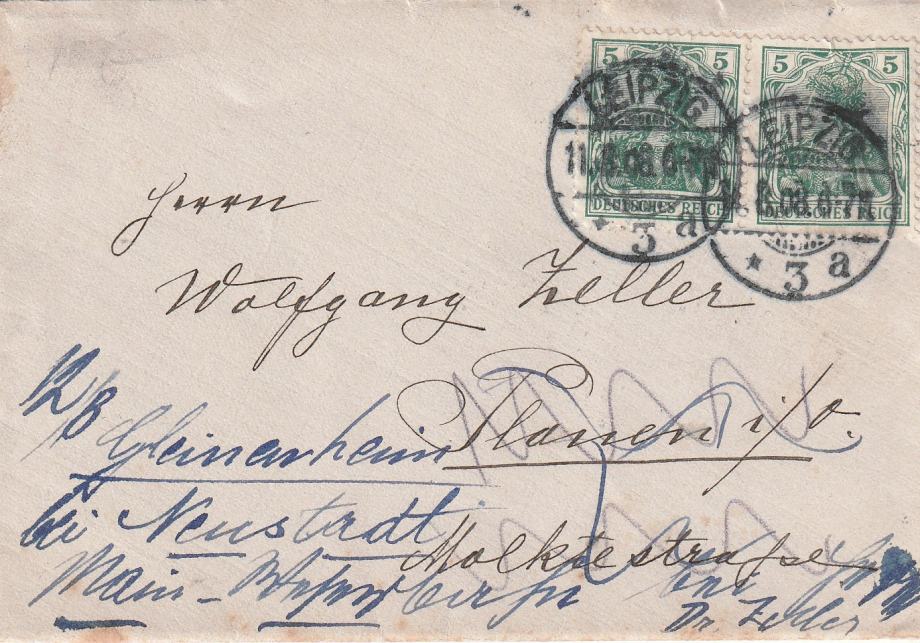 5 5 5 5
LEIPZIG LEIPZIG
11. 8.08. 6-7 8.08. 6-7
DEUTSCHES REICH DEUTSCHES REICH
* 3 a * 3 a
Herrn
Wolfgang Zeller
Plauen i/v.
12/8
Gleinerheim
bei Neustadt
Moltkestraße
Main-
bei
Dr. Zeller